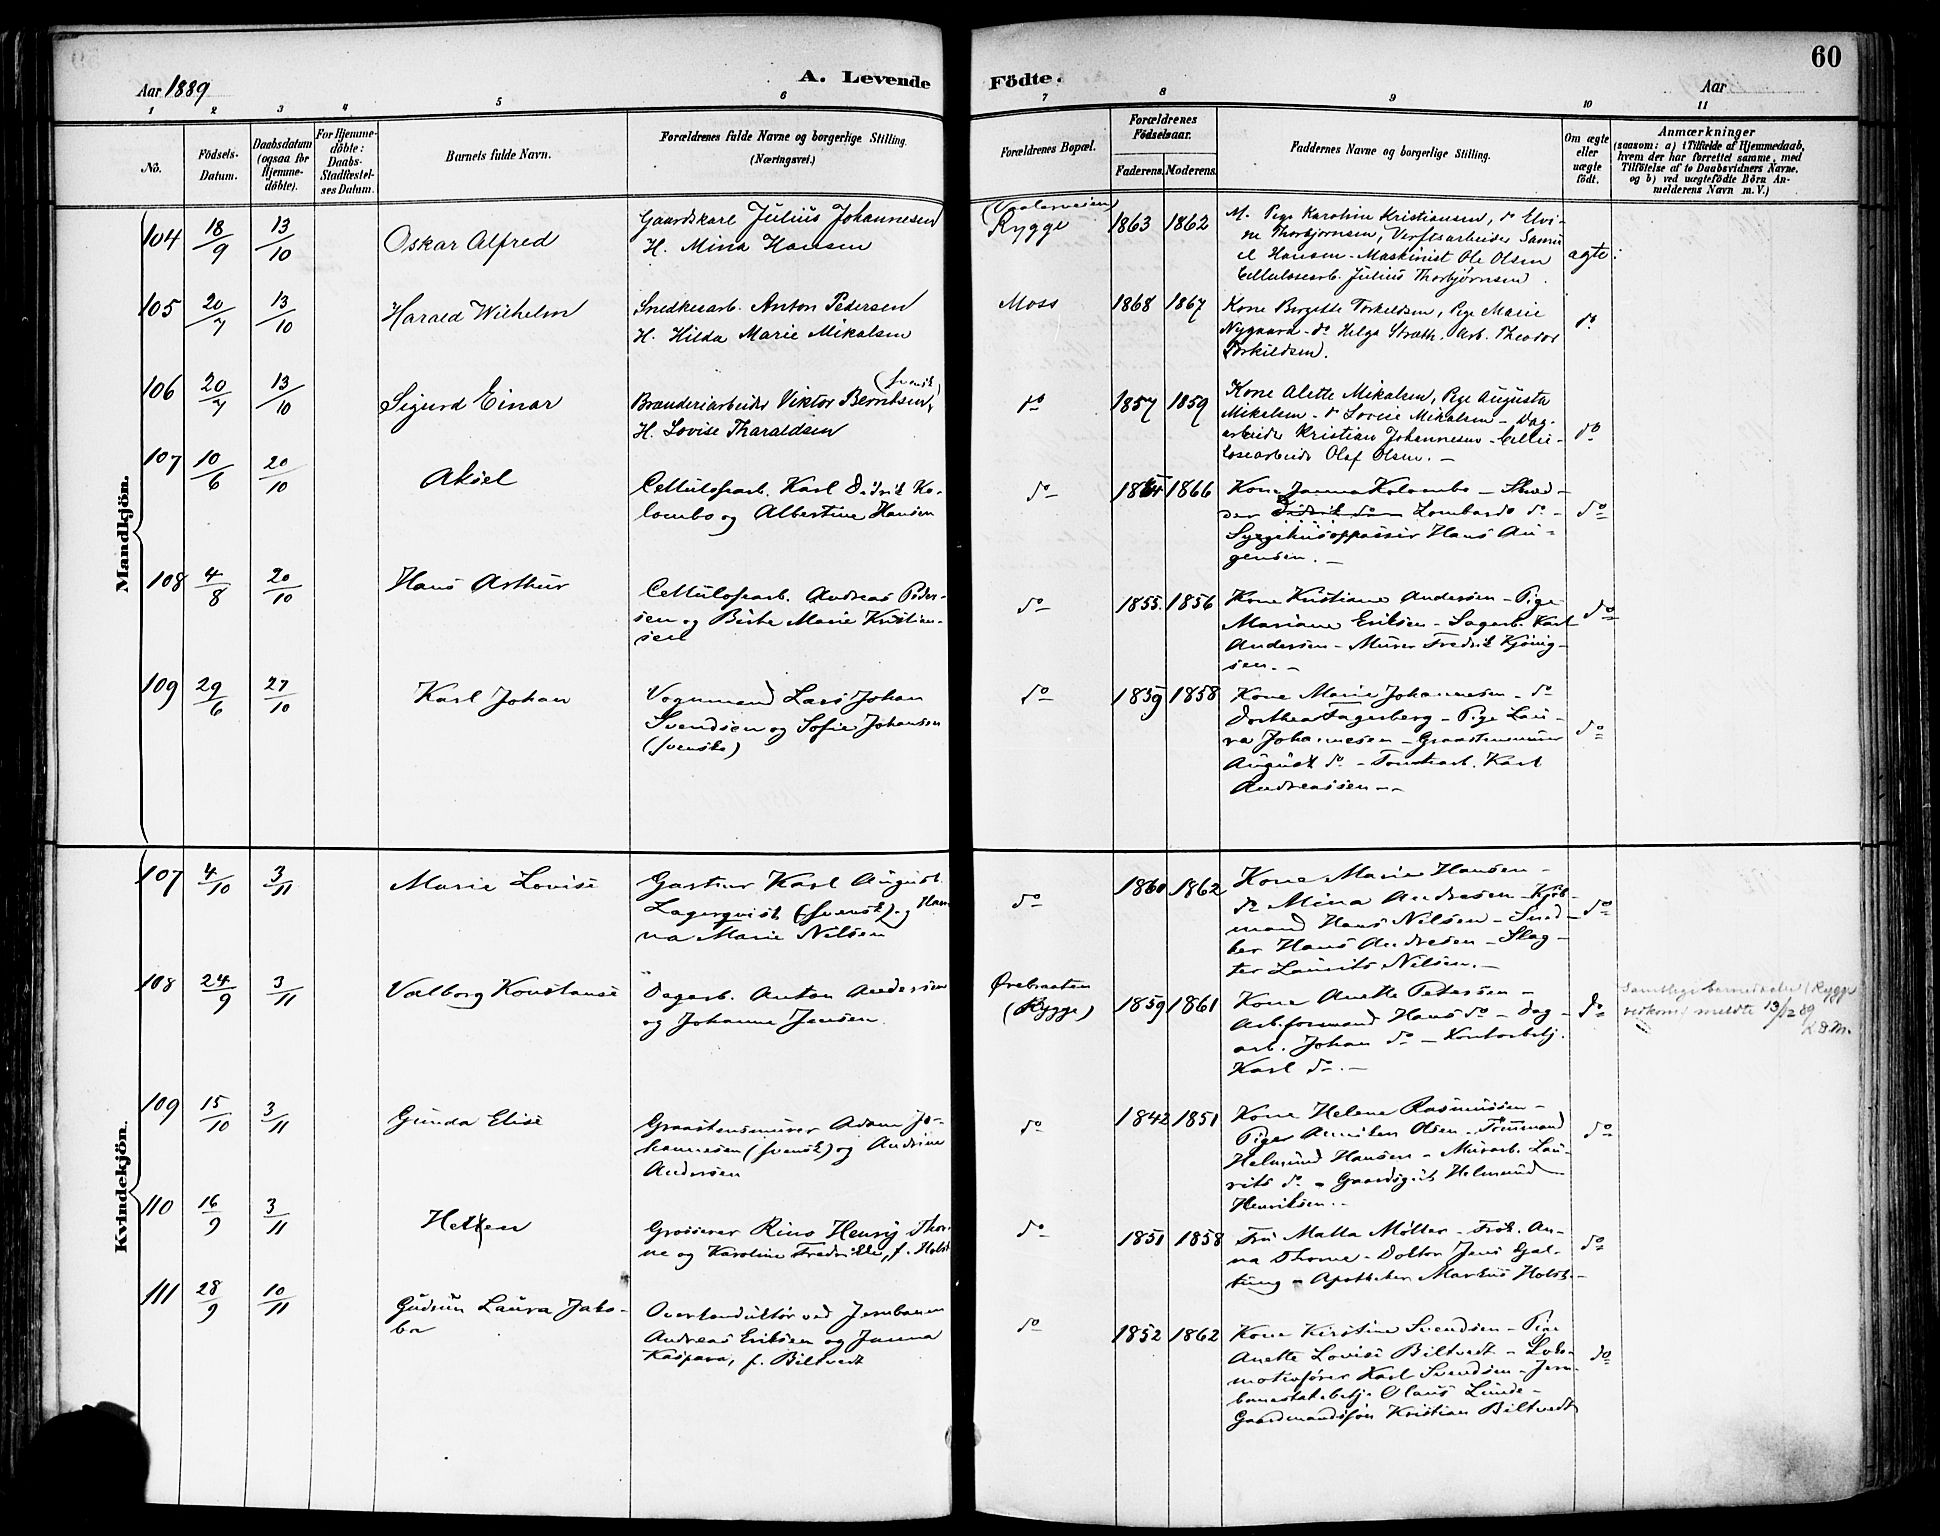 60
Aar 1889
A. Levende
Födte.
Aar
1 2 3 4 5 6 7 8 9 10 11
No.
Födsels-
Datum.
Daabsdatum
(ogsaa for
Hjemme-
döbte).
For Hjemme-
döbte:
Daabs-
Stadfæstel-
ses Datum.
Barnets fulde Navn.
Forældrenes fulde Navne og borgerlige Stilling.
(Næringsvei.)
Forældrenes Bopæl.
Forældrenes
Födselsaar.
Faderens.
Moderens.
Faddernes Navne og borgerlige Stilling.
Om ægte
eller
uægte
födt.
Anmærkninger
(saasom: a) i Tilfælde af Hjemmedaab,
hvem der har forrettet samme, med
Tilföielse af to Daabsvidners Navne,
og b) ved uægtefödte Börn An-
melderens Navn m. V.)
Mandkjön.
104 18/9 13/10 Oskar Alfred
Gaardskarl Julius Johannesen
H. Mina Hansen
(Vaalerveien)
Rygge
1863 1862
M. Pige Karoline Kristiansen, do Elvi-
ne Thorbjørnsen, Verftsarbeider Samu
el Hansen - Maskinist Ole Olsen
Cellulosearb. Julius Thorbjørnsen.
ægte
105 20/7 13/10 Harald Wilhelm
Snedkerarb. Anton Pedersen
H. Hilda Marie Mikalsen
Moss
1868 1867
Kone Bergitte Torkildsen, Pige Marie
Nygaard - do Helga Stræth, Arb. Theodor
Torkildsen.
do
106 20/7 13/10 Sigurd Einar
(svensk)
Brænderiarbeider Viktor Berntsen,
H. Lovise Tharaldsen
do
1857 1859
Kone Alette Mikalsen, Pige Augusta
Mikalsen - do Lovise Mikalsen - Dag-
arbeider Kristian Johannesen - Cellu-
losearbeider Olaf Olsen. -
do
107 10/6 20/10 Aksel
Cellulosearb. Karl Didrik Ko-
lombo og Albertine Hansen
do
1864 1866
Kone Janna Kolombo - Skræd-
der Didrik do Lombardo do -
Sygehusoppasser Hans Au-
gensen. -
do
108 4/8 20/10 Hans Arthur
Cellulosearb. Andreas Peder-
sen og Birte Marie Kristian-
sen
do
1855. 1856
Kone Kristiane Andersen - Pige
Mariane Eriksen - Sagarb. Karl
Andersen - Murer Fredrik Kjönig-
sen. -
do
109 29/6 27/10 Karl Johan
Vognmand Lars Johan
Svendsen og Sofie Johansen
(svenske)
do
1859 1858
Kone Marie Johannesen - do
Dorthea Fagerberg - Pige Lau-
ra Johannesen - Graastensmurer
August do - Tomtearb. Karl
Andreassen - -
do
Kvindekjön.
107 4/10 3/11 Marie Lovise
Gartner Karl August
Lagerqvist (svensk) og Han
na Marie Nilsen
do
1860 1862
Kone Marie Hansen -
do Mina Andresen - Kjöb-
mand Hans Nilsen - Sned-
ker Hans Andresen - Slag-
ter Laurits Nilsen. -
do
108 24/9 3/11 Valborg Konstanse
Dagarb. Anton Andersen
og Johanne Jensen.
Ørebraaten
(Rygge)
1859 1861
Kone Anette Petersen -
Arb.formand Hans do - Dag-
arb. Johan do - Kontorbetj.
Karl do. -
do
Samtlige barnedaabe i Rygge
vedkom. meldte 13/12 89
K.D.M.
109 15/10 3/11 Gunda Elise
Graastensmurer Adam Jo-
hannesen (svensk) og Andrine
Andersen
do
1842 1851
Kone Helene Rasmussen -
Pige Anniken Olsen - Tömmermand
Helmund Hansen - Murarb. Lau-
rits do - Gaardsgut Helmund
Henriksen. -
do
110 16/9 3/11 Hellen
Grosserer Rins Henrij Thor
ne og Karoline Fredrikke, f. Holst
do
1851 1858
Fru Malla Møller - Frök. An-
na Thorne - Doktor Jens Gal-
tung - Apotheker Markus Holst -
do
111 28/9 10/11 Gudrun Laura Jako-
ba
Overkonduktör ved Jernbanen
Andreas Eriksen og Janna
Kaspara, f. Biltvedt
do
1852 1862
Kone Kirstine Svendsen - Pige
Anette Lovise Biltvedt - Loko-
motivförer Karl Svendsen - Jern-
banestatsbetj. Olaus Lunde -
Gaardmandsfön Kristian Biltvedt
do